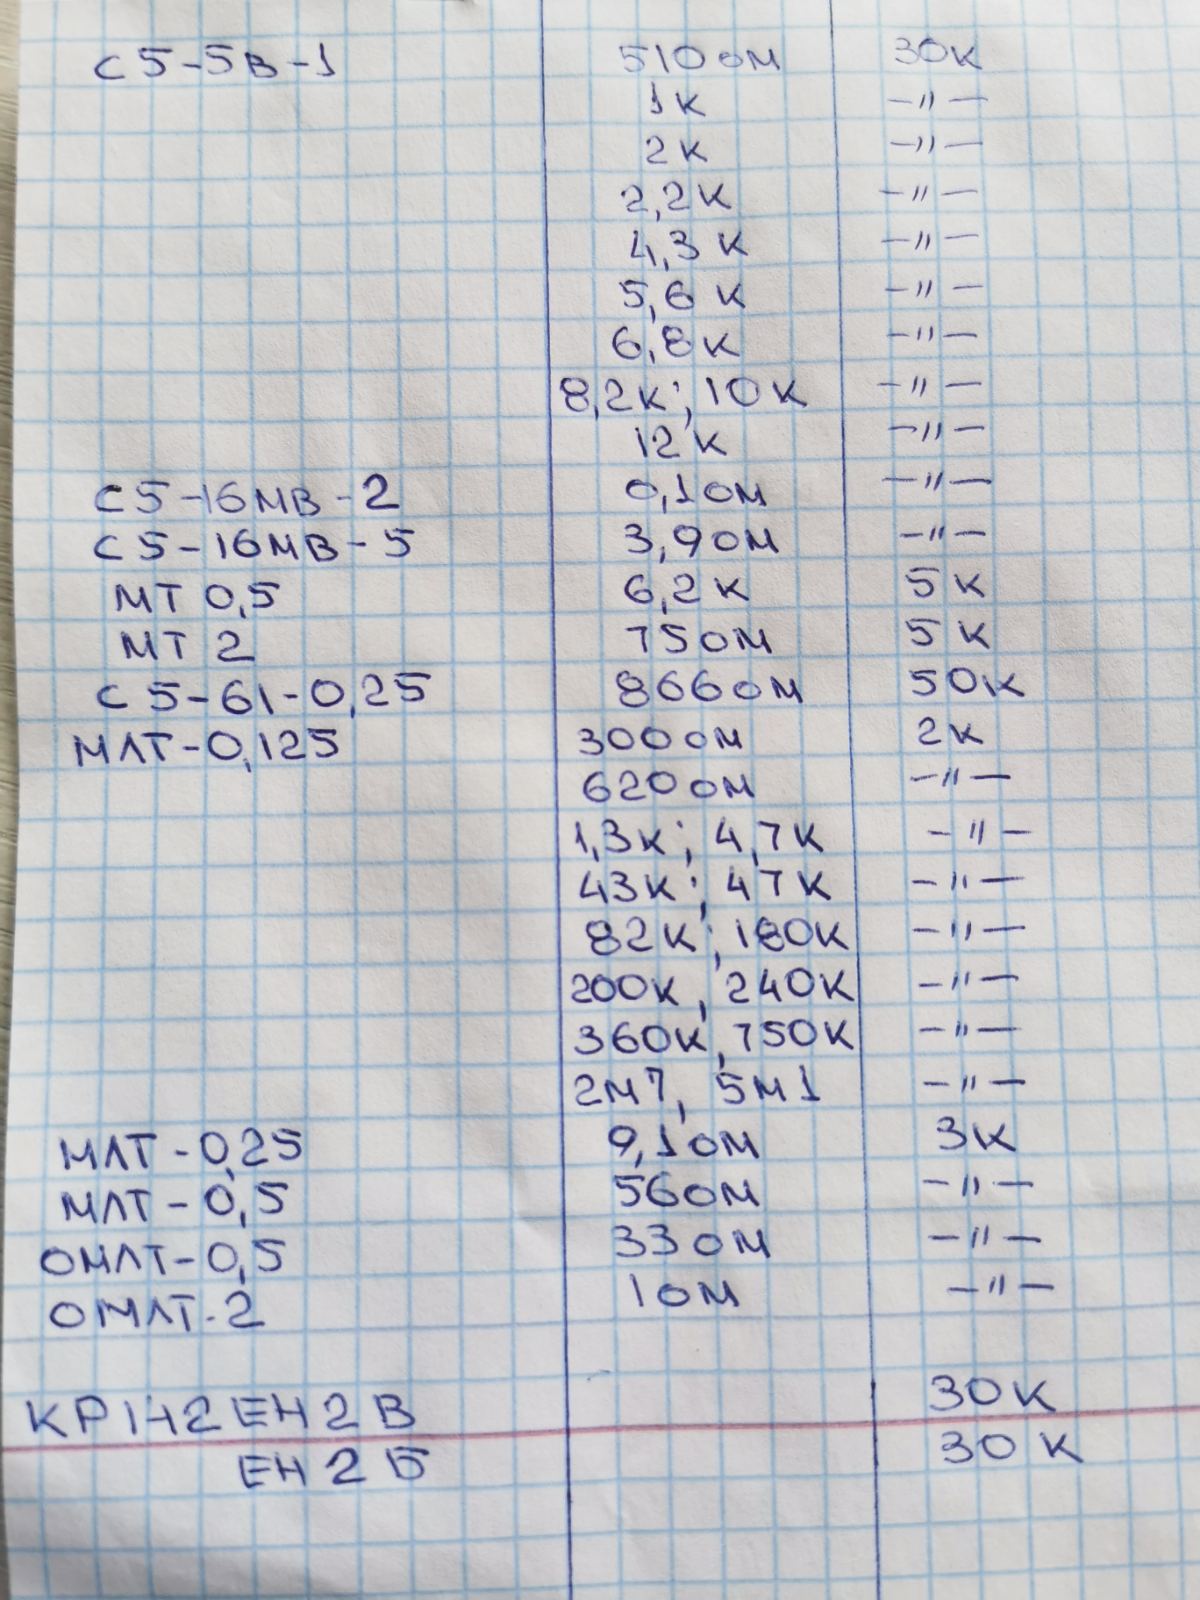 С5-5В-1 510 ом 30к
1к -"-
2к -"-
2,2к -"-
4,3 к -"-
5,6 к -"-
6,8к -"-
8,2к; 10к -"-
12к -"-
С5-16МВ-2 0,1 ом -"-
С5-16МВ-5 3,9 ом -"-
МТ 0,5 6,2 к 5 к
МТ 2 75 ом 5 к
С5-61-0,25 866 ом 50к
МЛТ-0,125 300 ом 2к
620 ом -"-
1,3к; 4,7к -"-
43к; 47к -"-
82к; 180к -"-
200к, 240к -"-
360к, 750к -"-
2М7, 5М1 -"-
МЛТ-0,25 9,1 ом 3к
МЛТ-0,5 56 ом -"-
ОМЛТ-0,5 33 ом -"-
ОМЛТ-2 1 ом -"-
КР142ЕН2В 30к
ЕН2Б 30 к